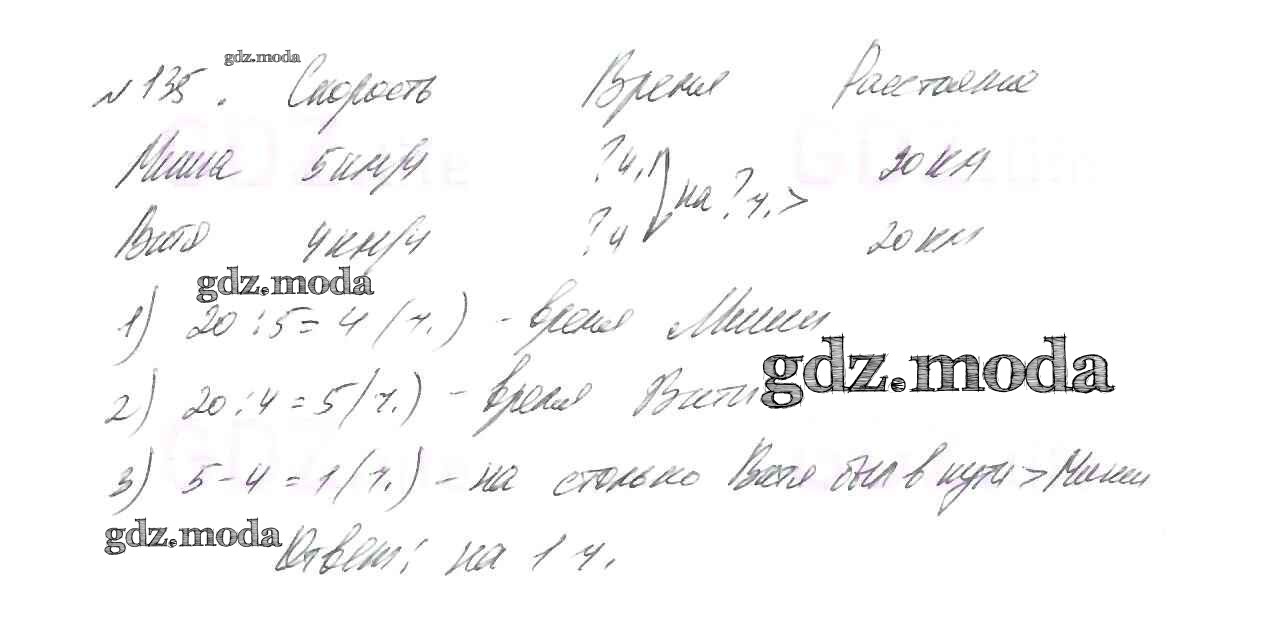 gdz.moda
№135. Скорость Время Расстояние
Миша 5км/ч ?ч. на ?ч. > 20км
Витя 4км/ч ?ч 20км
gdz.moda
1) 20:5=4(ч.) - время Миши
gdz.moda
2) 20:4=5(ч.) - время Вити
3) 5-4=1(ч.) - на столько Витя был в пути > Миши
gdz.moda
Ответ: на 1 ч.